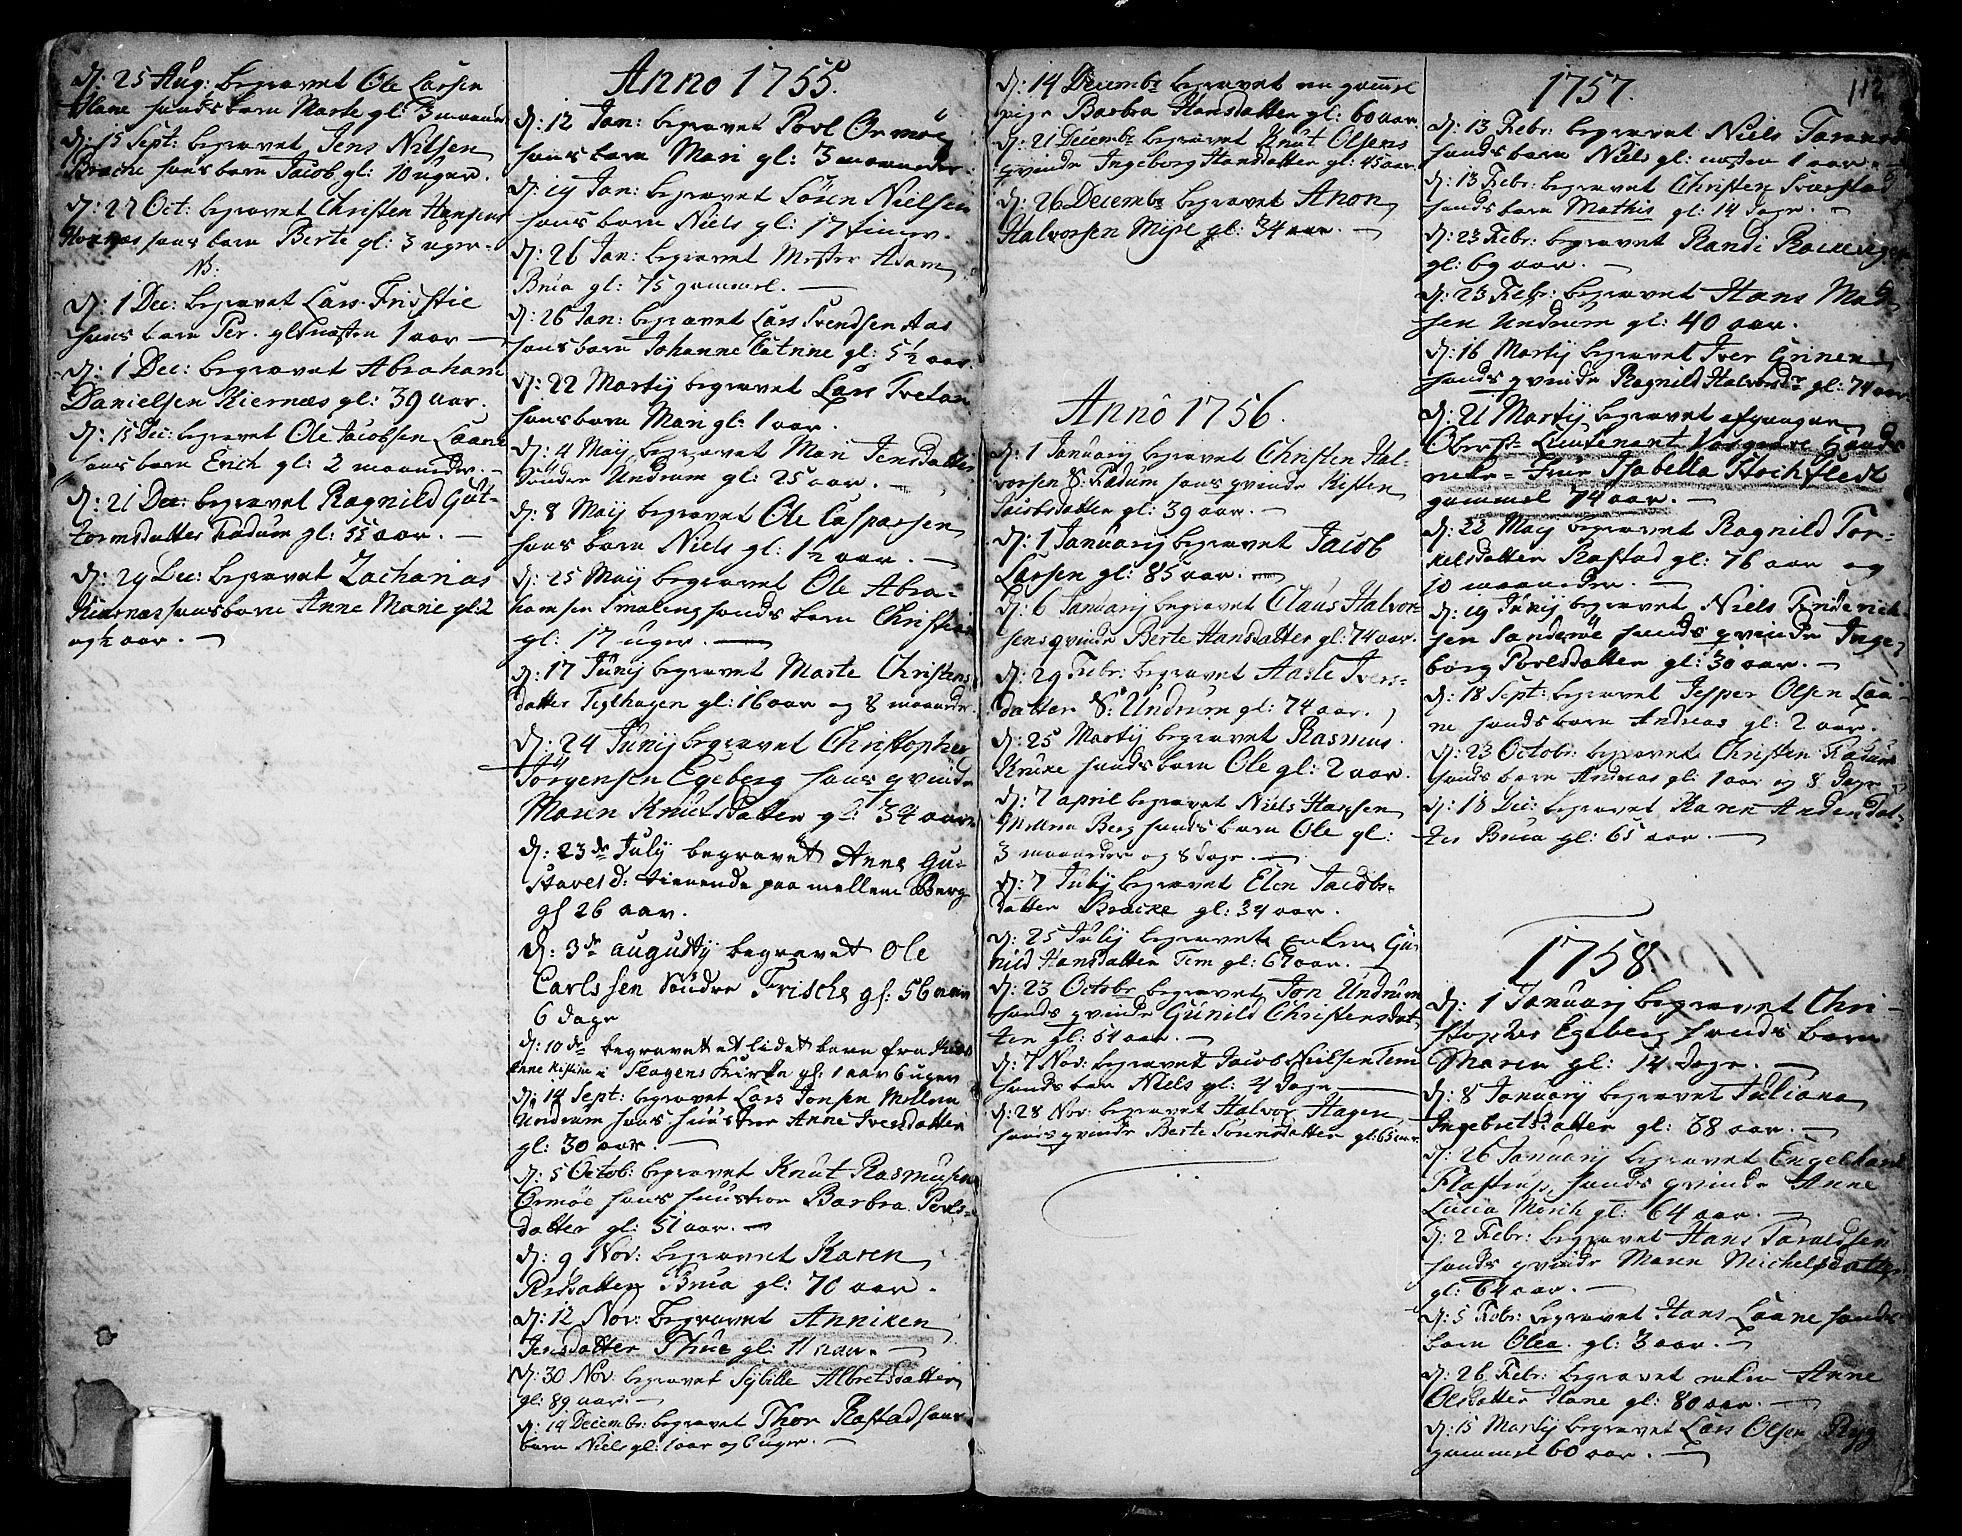 D: 25 Aug: begravet Ole Larsen
Hane hans barn Marte gl: 3 maaner
D: 15 Sept: begravet Jens Nilsen
Brache hans barn Jacob gl: 10 uger.
D: 27 Oct: begravet Christen Hansens
hans barn Berte gl: 3 uger
NB.
D: 1 Dec: begravet Lars Fridstie
hans barn Per. gl: næsten 1 aar
D: 1 Dec: begravet Abraham
Danielsen Kiernæs gl: 39 aar.
D: 15 Dec: begravet Ole Jacobsen Laane
hans barn Erich gl: 2 maaneder.
D: 21 Dec: begravet Ragnild Gut-
tormsdatter Fadum gl: 55 aar.
D: 29 Dec: begravet Zacharias
Kiernæs hans barn Anne Marie gl: 2
og ½ aar.
Anno 1755.
D: 12 Jan: begravet Povl Ormöe
hans barn Mari gl: 3 maaneder.
D: 19 Jan: begravet Sören Nielsen
hans barn Niels gl: 17 timer.
D: 26 Jan: begravet Mester Adam
Brua gl: 75 gammel.
D: 26 Jan: begravet Lars Svendsen Aas
hans barn Johanne Catrine gl: 5½ aar.
D: 22 Martij begravet Lars Tveten
hans barn Mari gl: 1 aar.
D: 4 Maij begravet Mari Jensdatter
Sönder Undrum gl: 25 aar.
D: 8 Maij begravet Ole Caspersen
hans barn Niels gl: 1½ aar.
D: 25 Maij begravet Ole Abra-
hamsen Smaleng hands barn Christian
gl: 17 uger.
D: 17 Junij begravet Marte Christens
datter Feslhagen gl: 16 aar og 8 maaneder
D: 24 Junij begravet Christopher
Jörgensen Egeberg hans qvinde
Maren Knutsdatter gl: 34 aar
D: 23de July begravet Anne Gu-
stavesd: tienende paa mellem Berg
gl 26 aar.
D: 3de augustij begravet Ole
Carlssen Söndre Frische gl: 56 aar
6 dage
D: 10de begravet et lidet barn fra
Anne Kistine i Slagens Kirke gl: 1 aar 6 uger
D: 14 Sept: begravet Lars Jonsen Mellem
Undrum hans huustroe Anne Iversdatter
gl: 30 aar.
D: 5 Octob: begravet Knut Rasmusen
Ormöe hans huustroe Barbra Povls-
datter gl: 51 aar.
D: 9 Nov: begravet Karen
Brua gl: 70 aar.
D: 12 Nov: begravet Anniken
Jensdatter Thue gl: 11 aar.
D: 30 Nov: begravet Sybille Albretsdatter
gl: 89 aar.
D: 14 Decembr: begravet Thor Rastad hans
barn Niels gl: 1 aar og 6 uger.
D: 14 Decembr begravet en gammel
pige Barbra Hansdatter gl: 60 aar
D: 21 Decembr begravet Knut Olsens
qvinde Ingeborg Hansdatter gl: 45 aar.
D: 26 Decembr begravet Anon
Halvorsen Miße gl: 34 aar.
Anno 1756.
D: 1 Januarij begravet Christen Hal-
vorsen S: Fadum hans qvinde Kisten
Jacobsdatter gl: 39 aar.
D: 1 Januarij begravet Jacob
Larsen gl: 85 aar.
D: 6 Januarij begravet Claus Halvor-
sens qvinde Berte Hansdatter gl: 74 aar.
D: 29 Febr: begravet Aasle Ivers-
datter S: Undrum gl: 74 aar.
D: 25 Martij begravet Rasmus
Kruke hands barn Ole gl: 2 aar.
D: 7 april begravet Niels Hansen
Mellem Berg hands barn Ole gl:
3 maaneder og 8 dage.
D: 7 Julij begravet Elen Jacobs-
datter Bracke gl: 34 aar.
D: 25 Julij begravet enken Gu-
nild Hansdatter Tem gl: 67 aar.
D: 23 Octobr begravet Jon Undrum
hands qvinde Gunild Christensdat-
ter gl: 54 aar.
D: 7 Nov: begravet Jacob Nielsen Tem
hands barn Niels gl: 4 dage
D: 28 Nov: begravet Halvor Hagen
hands qvinde Berte Sörensdatter gl: 65 aar
1757.
112
D: 13 Febr: begravet Niels
hands barn Niels gl: næsten 1 aar.
D: 13 Febr: begravet Christen Svarstad
hands barn Mathis gl: 14 dage.
D: 23 Febr: begravet Randi
gl: 69 aar.
D: 23 Febr: begravet Hans Mad-
sen Undrum gl: 40 aar.
D: 16 Martij begravet Iver Grinen
hands qvinde Ragnild Halvorsdr gl: 74 aar
D: 21 Martij begravet afgangne
Oberst Lieutenant
Frue Isabella Stochfledt
gammel 74 aar.
D: 22 Maij begravet Ragnild Tor-
kelsdatter Rastad gl: 76 aar og
10 maaneder.
D: 19 Junij begravet Niels Friderich-
sen Sanderöe hands qvinde Inge-
borg Povlsdatter gl: 30 aar.
D: 18 Sept: begravet Jesper Olsen Laa-
ne hands barn Andreas gl: 2 aar.
D: 23 Octobr: begravet Christen Fadum
hands barn Andreas gl: 1 aar og 8 dage
D: 18 Dec: begravet Karen Andersdat-
ter Brua gl: 65 aar.
1758.
D: 1 Januarij begravet Chri-
stopher Egeberg hands barn
Maren gl: 14 dage.
D: 8 Januarij begravet Juliana
Ingebretsdatter gl: 68 aar.
D: 26 Januarij begravet Engelhart
Flastrup hands qvinde Anne
Lucia Mörch gl: 64 aar.
D: 2 Febr: begravet Hans Taraldsen
hands qvinde Maren Michelsdatter
gl: 64 aar.
D: 5 Febr: begravet Hans Laane hands
barn Olea gl: 3 aar.
D: 26 Febr: begravet enken Anne
Olsdatter Hane gl: 80 aar.
D: 15 Martij begravet Lars Olsen Ryg
gammel 60 aar.